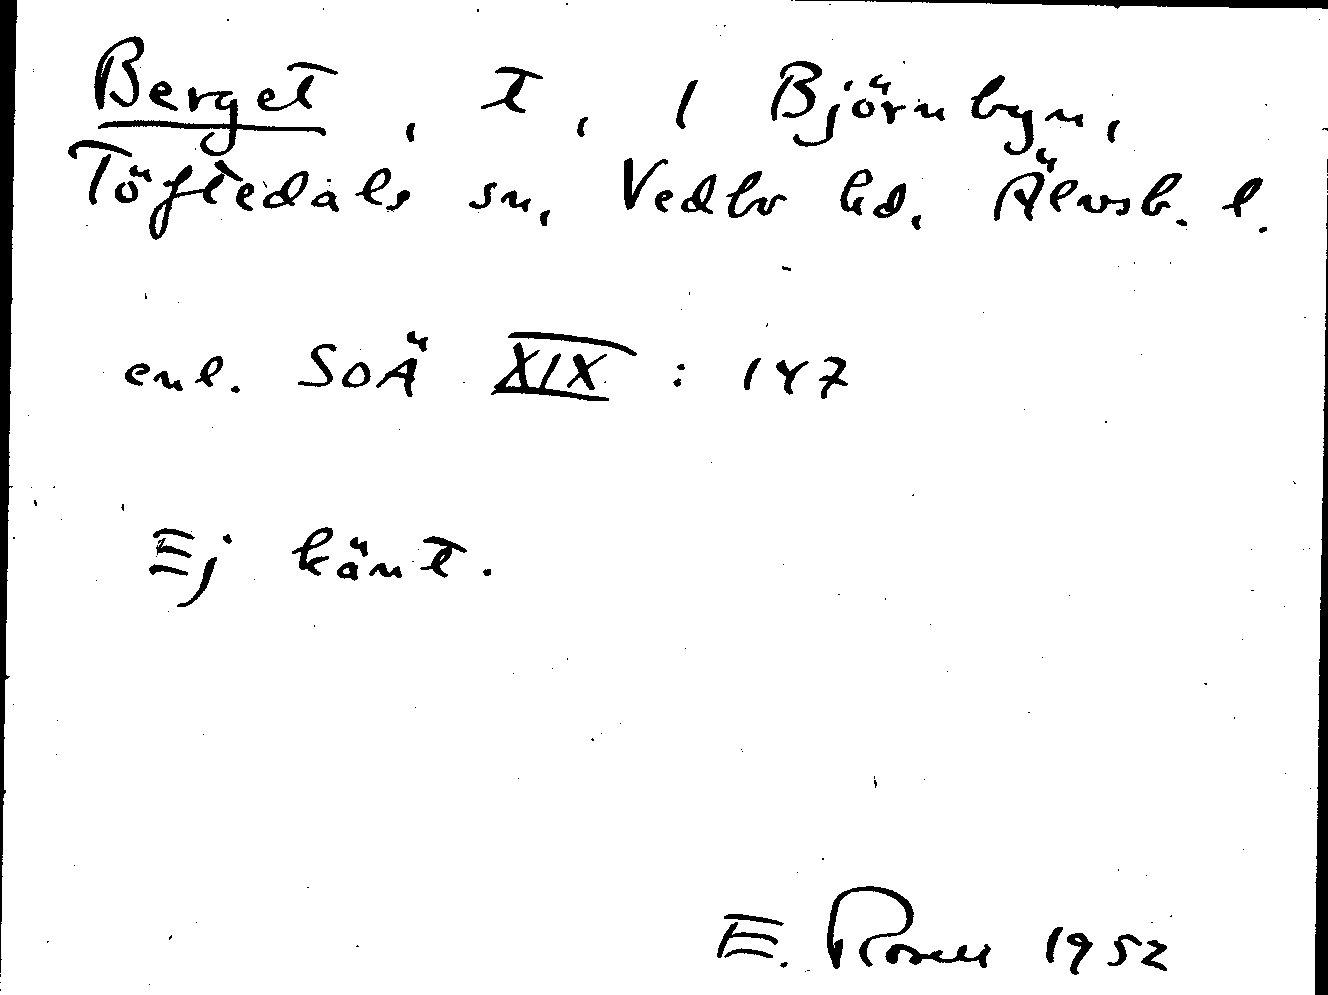 Berget, t, 1 Björnbyn,
Töftedals sn, Vedbo hd, Älvsb. l.
enl. SOÄ XIX : 147
Ej känt.
E. Rosell 1952